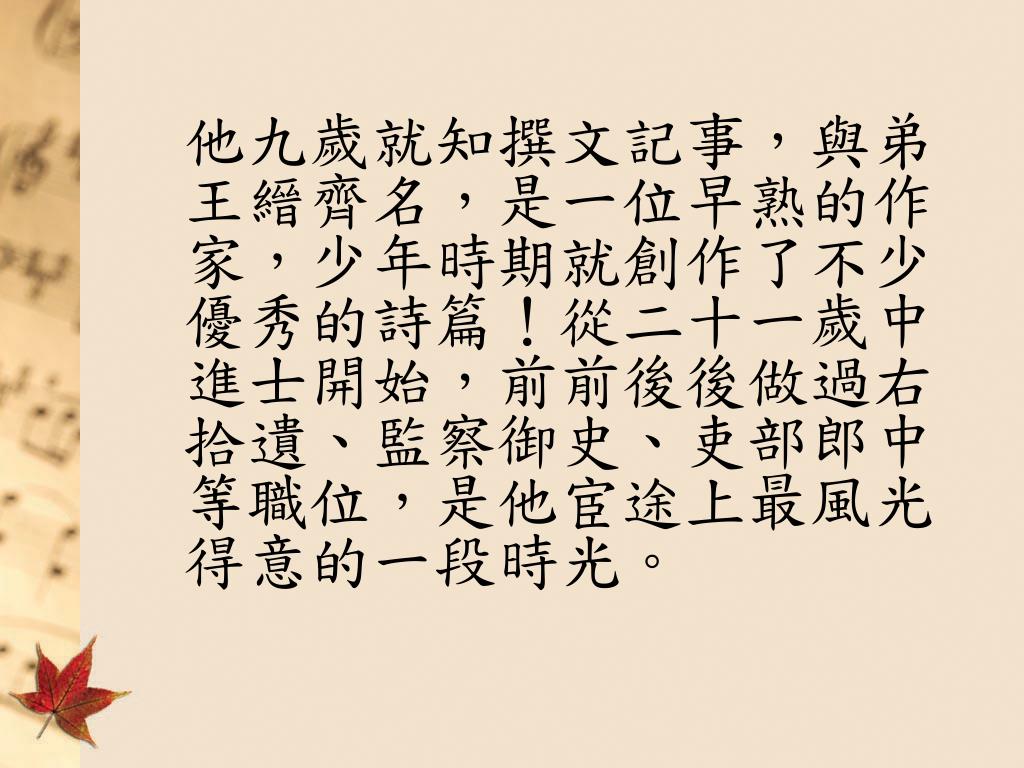 他九歲就知撰文記事，與弟
王縉齊名，是一位早熟的作
家，少年時期就創作了不少
優秀的詩篇！從二十一歲中
進士開始，前前後後做過右
拾遺、監察御史、吏部郎中
等職位，是他宦途上最風光
得意的一段時光。